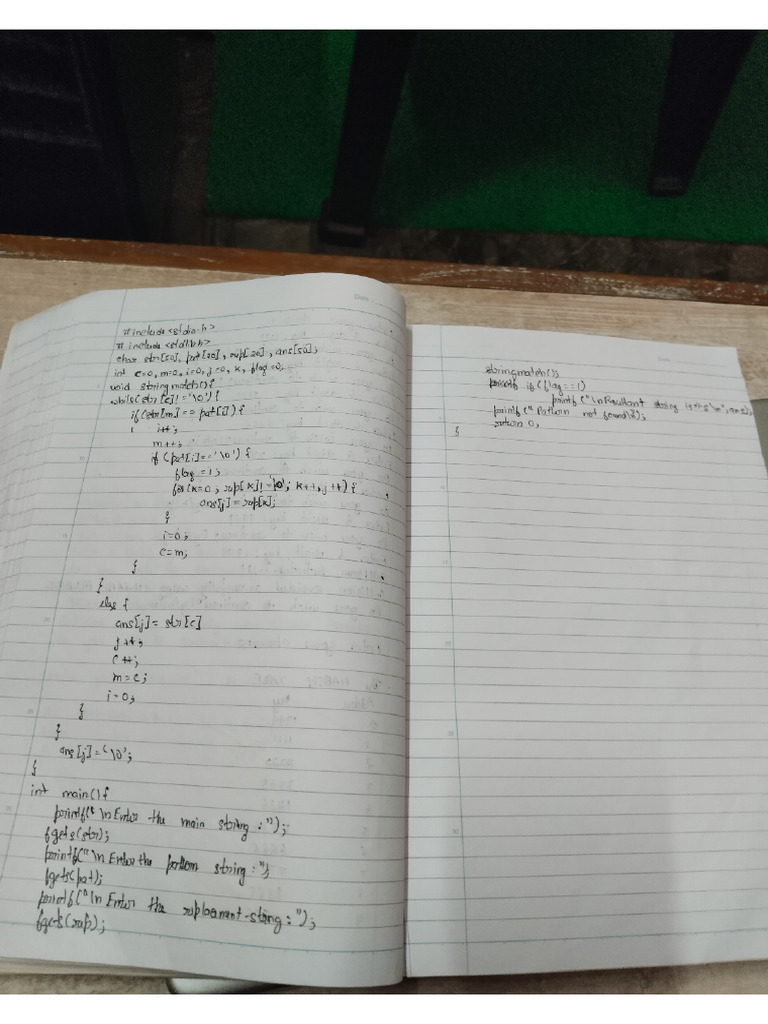 #include <stdio.h>
#include <stdlib.h>
char str[50], pat[20], rep[20], ans[50];
int c=0, m=0, i=0, j=0, k, flag=0;
void stringmatch(){
while(str[c]!='\0'){
if(str[m]==pat[i]){
i++;
m++;
if(pat[i]=='\0'){
flag=1;
for(k=0; rep[k]!='\0'; k++, j++){
ans[j]=rep[k];
}
i=0;
c=m;
}
}
else{
ans[j]=str[c]
j++;
c++;
m=c;
i=0;
}
}
ans[j]='\0';
}
int main(){
printf("\nEnter the main string:");
fgets(str);
printf("\nEnter the pattern string:");
fgets(pat);
printf("\nEnter the replacement string:");
fgets(rep);
stringmatch();
if(flag==1)
printf("\nResultant string is
printf("Pattern not found
return 0;
}